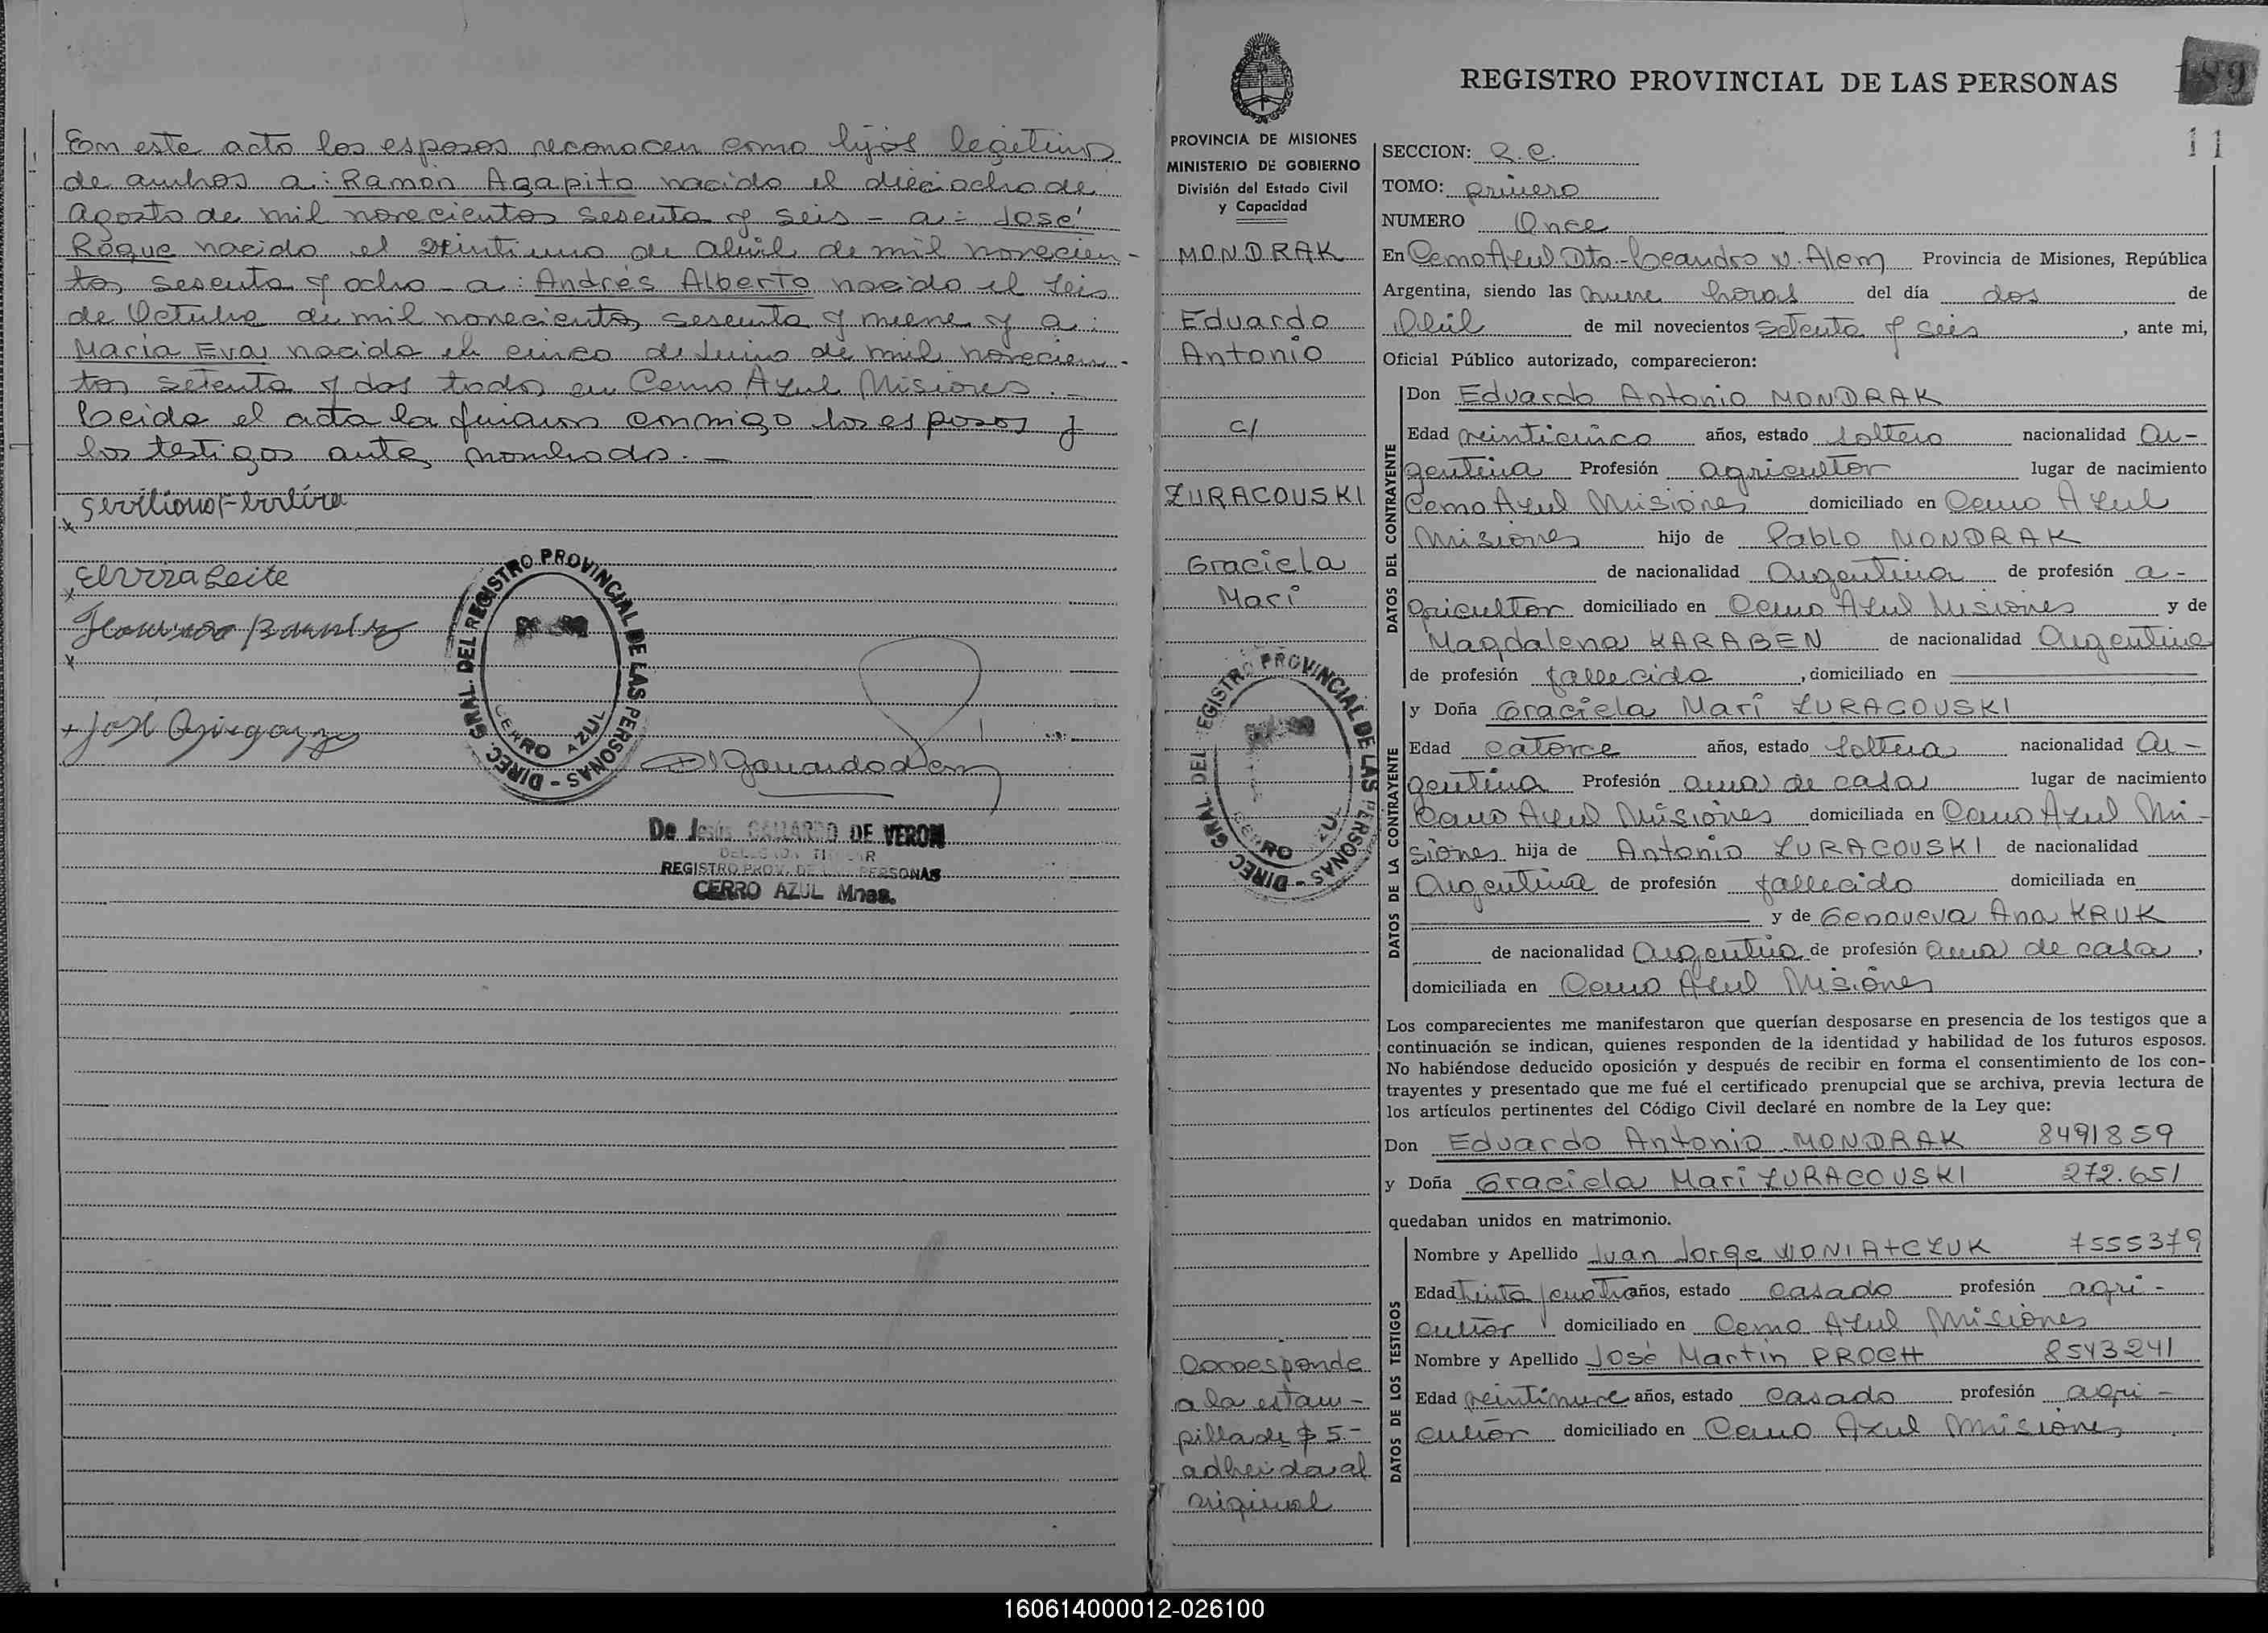 En este acto los esposos reconocen como hijos legitimos
de ambos a: Ramón Agapito nacido el dieciocho de
Agosto de mil novecientos sesenta y seis - a: José
Roque nacido el veintiuno de Abril de mil novecien-
tos sesenta y ocho - a: Andrés Alberto nacido el seis
de Octubre de mil novecientos sesenta y nueve y a:
María Eva nacida el cinco de Junio de mil novecien-
tos setenta y dos todos en Cerro Azul Misiones.-
Leida el acta la firman conmigo los esposos y
los testigos antes nombrados.-
Elvira Leite
DIREC. GRAL. DEL REGISTRO PROVINCIAL DE LAS PERSONAS -
CERRO AZUL
De Jesús GALLARDO DE VERON
DELEGADA TITULAR
REGISTRO PROV. DE LAS PERSONAS
CERRO AZUL Mnes.
189
11
PROVINCIA DE MISIONES
MINISTERIO DE GOBIERNO
División del Estado Civil
y Capacidad
MONDRAK
Eduardo
Antonio
c/
ZURACOUSKI
Graciela
Mari
DIREC. GRAL. DEL REGISTRO PROVINCIAL DE LAS PERSONAS -
CERRO AZUL
Corresponde
a la estam-
pilla de $ 5.-
adherida al
original
REGISTRO PROVINCIAL DE LAS PERSONAS
SECCION: R.C.
TOMO: primero
NUMERO Once
En Cerro Azul Dto. Leandro N. Alem Provincia de Misiones, República
Argentina, siendo las nueve horas del día dos de
Abril de mil novecientos setenta y seis, ante mi,
Oficial Público autorizado, comparecieron:
DATOS DEL CONTRAYENTE
Don Eduardo Antonio MONDRAK
Edad veinticinco años, estado soltero nacionalidad Ar-
gentina Profesión agricultor lugar de nacimiento
Cerro Azul Misiones domiciliado en Cerro Azul
Misiones hijo de Pablo MONDRAK
de nacionalidad Argentina de profesión a-
gricultor domiciliado en Cerro Azul Misiones y de
Magdalena KARABEN de nacionalidad Argentina
de profesión fallecida, domiciliado en
DATOS DE LA CONTRAYENTE
y Doña Graciela Mari ZURACOUSKI
Edad catorce años, estado soltera nacionalidad Ar-
gentina Profesión ama de casa lugar de nacimiento
Cerro Azul Misiones domiciliada en Cerro Azul Mi-
siones hija de Antonio ZURACOUSKI de nacionalidad
Argentina de profesión fallecido domiciliada en
y de Genoveva Ana KRUK
de nacionalidad Argentina de profesión ama de casa,
domiciliada en Cerro Azul Misiones
Los comparecientes me manifestaron que querían desposarse en presencia de los testigos que a
continuación se indican, quienes responden de la identidad y habilidad de los futuros esposos.
No habiéndose deducido oposición y después de recibir en forma el consentimiento de los con-
trayentes y presentado que me fué el certificado prenupcial que se archiva, previa lectura de
los artículos pertinentes del Código Civil declaré en nombre de la Ley que:
Don Eduardo Antonio MONDRAK 8491859
y Doña Graciela Mari ZURACOUSKI 272.651
quedaban unidos en matrimonio.
DATOS DE LOS TESTIGOS
Nombre y Apellido Juan Jorge WONIATCZUK 7555379
Edad treinta y cuatro años, estado casado profesión agri-
cultor domiciliado en Cerro Azul Misiones
Nombre y Apellido José Martin PROCH 8543241
Edad veintinueve años, estado casado profesión agri-
cultor domiciliado en Cerro Azul Misiones
160614000012-026100